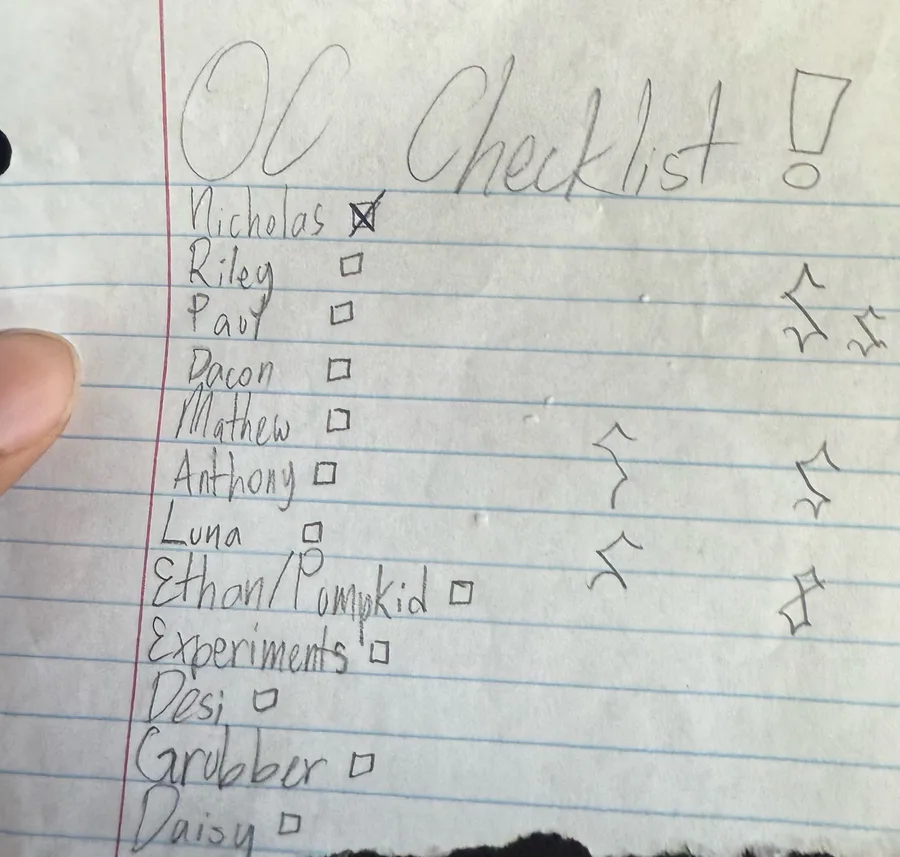 OC Checklist!
Nicholas ☒
Riley ☐
Paul ☐
Dacon ☐
Mathew ☐
Anthony ☐
Luna ☐
Ethan/Pumpkid ☐
Experiments ☐
Desi ☐
Grubber ☐
Daisy ☐